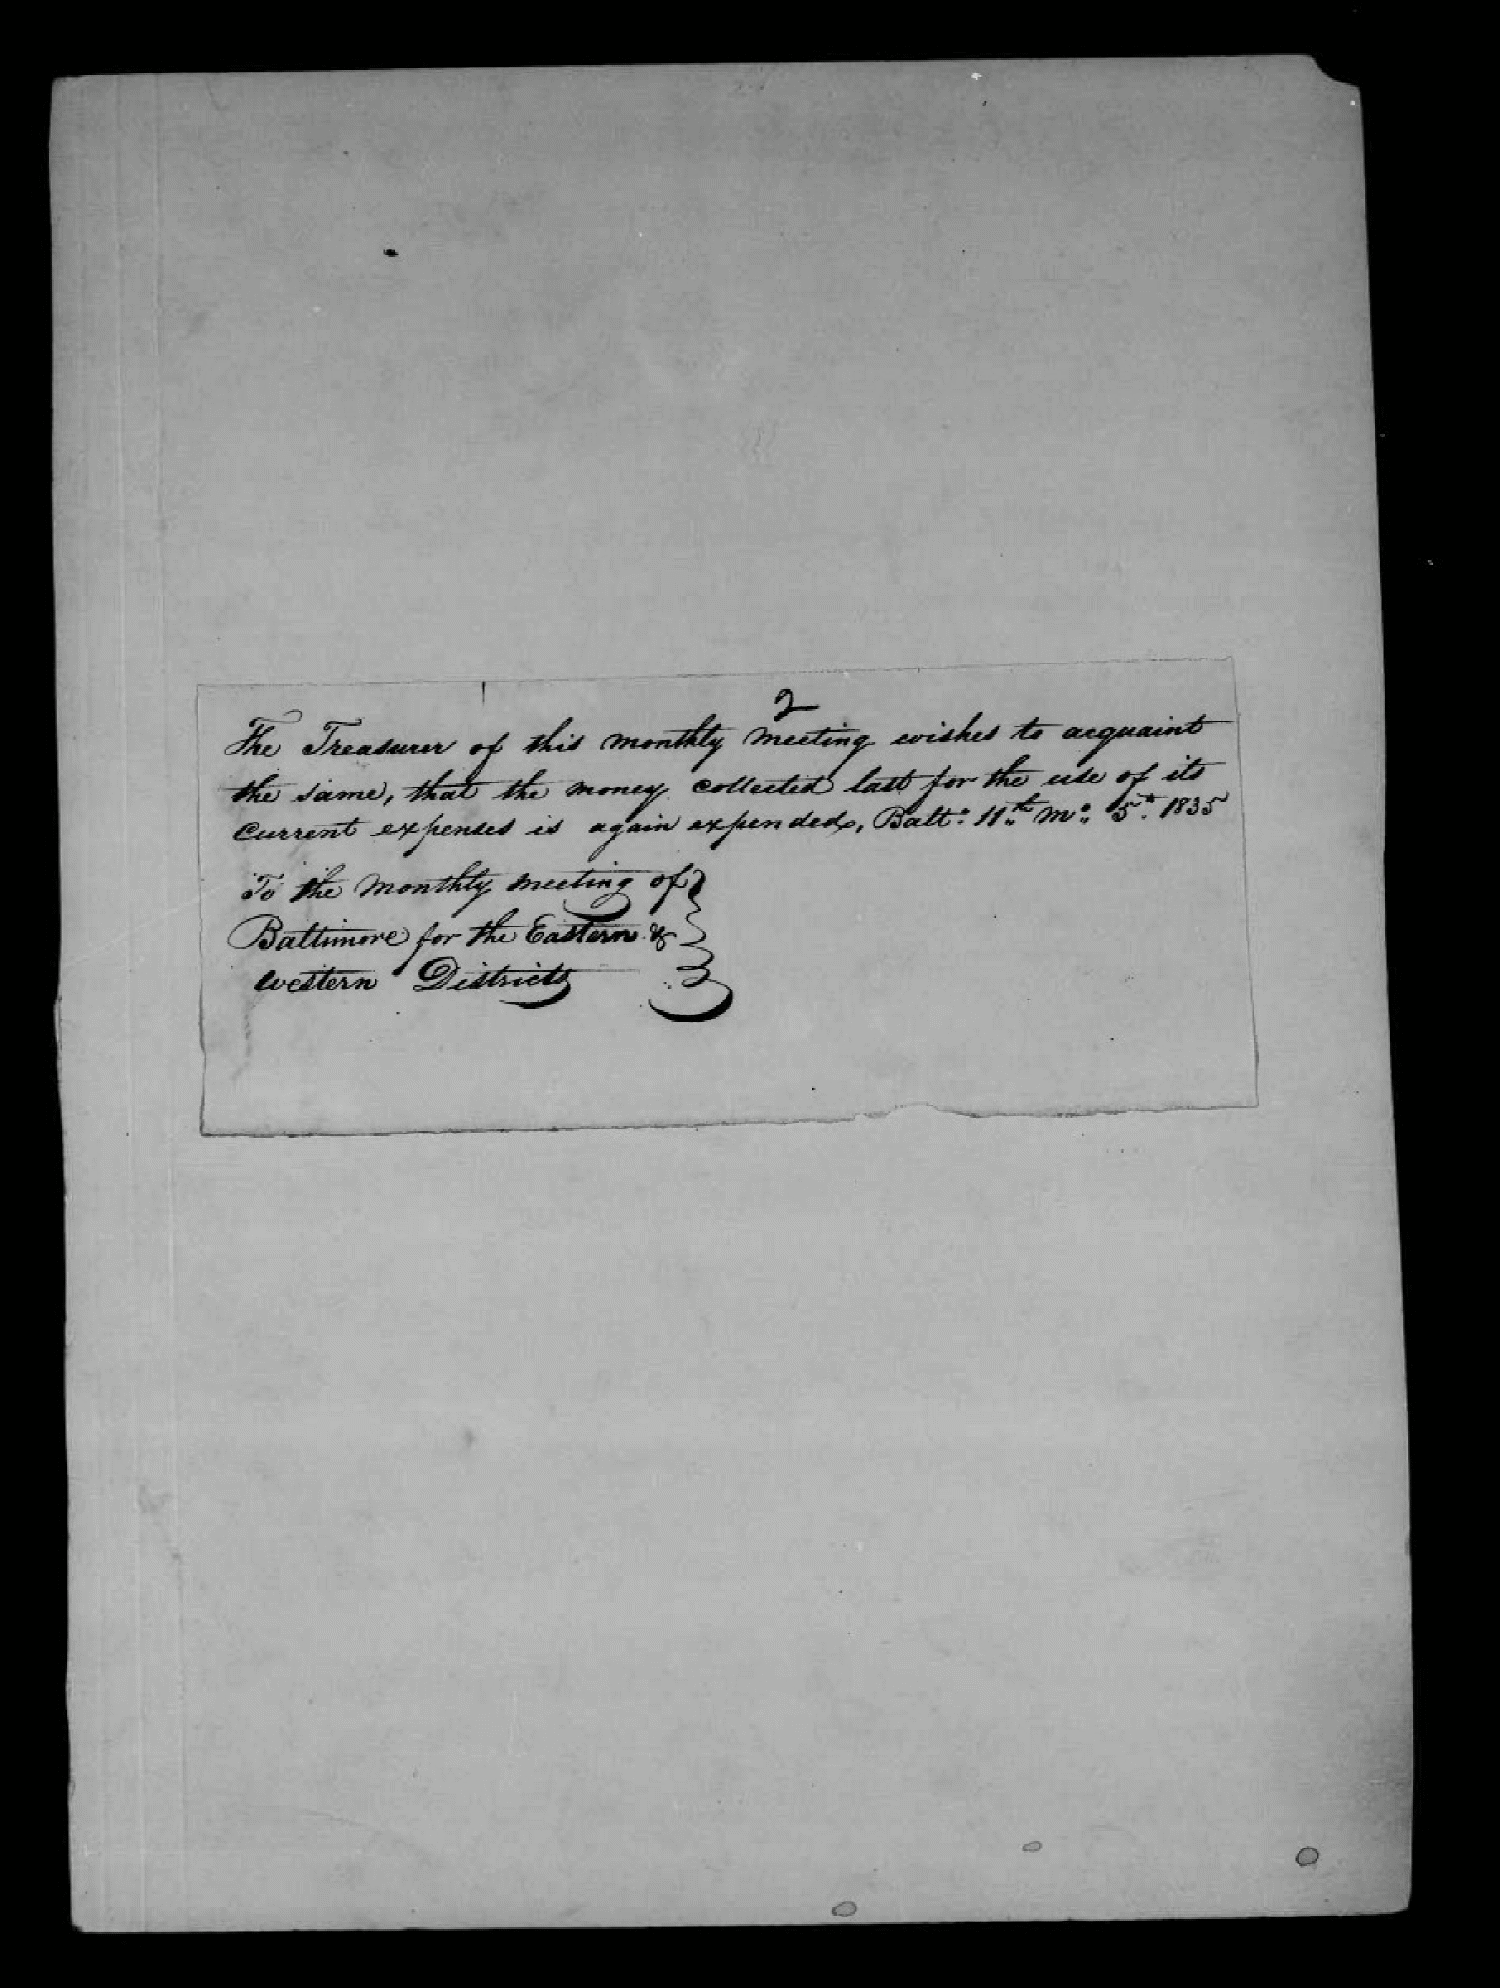 2
The Treasurer of this monthly meeting wishes to acquaint
the same, that the money collected last for the use of its
current expenses is again expended, Balto. 11th Mo. 5th 1835
To the monthly meeting of
Baltimore for the Eastern &
western Districts